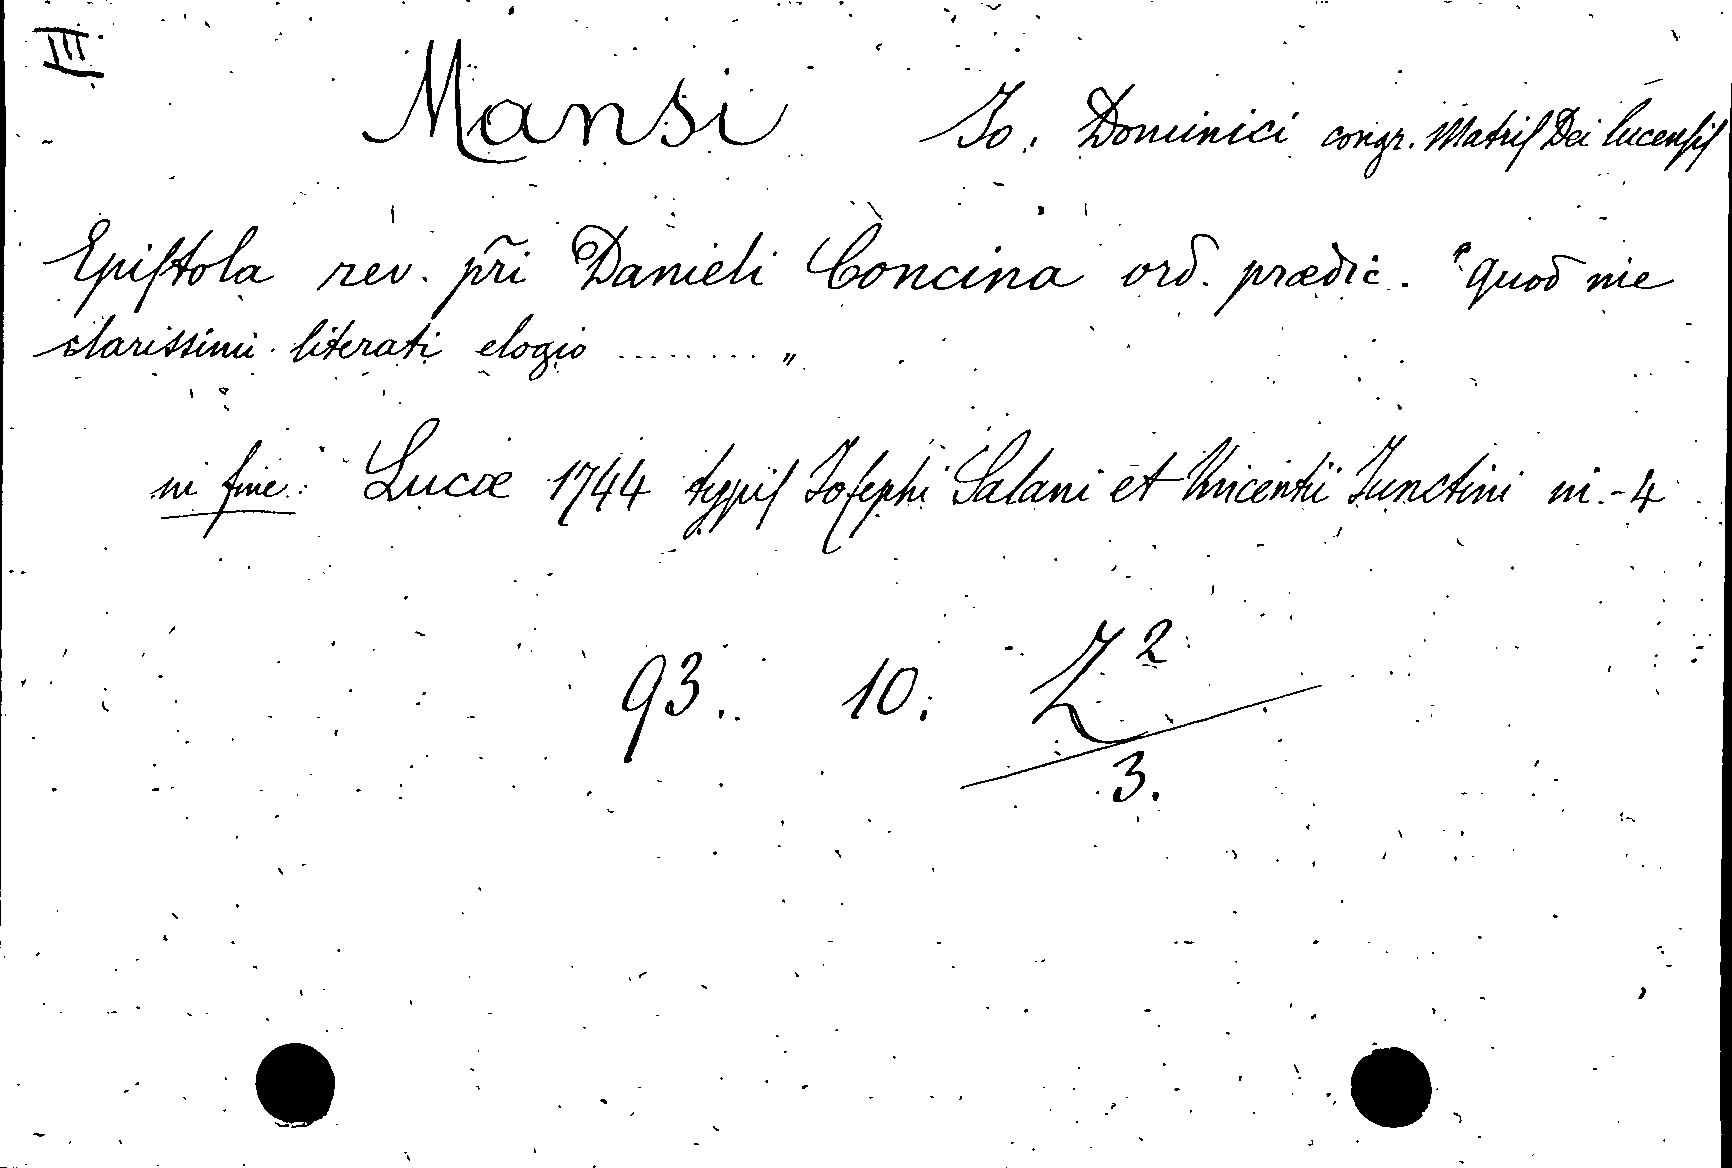 III
Mansi Jo. Dominici congr. Matris Dei lucensis
Epistola rev. pr̃i Danieli Concina ord. prædic. "Quod me
clarissimi literati elogio ........ "
in fine: Lucæ 1744 typis Josephi Salani et Vincentii Junctini in-4
93. 10. Z²
3.